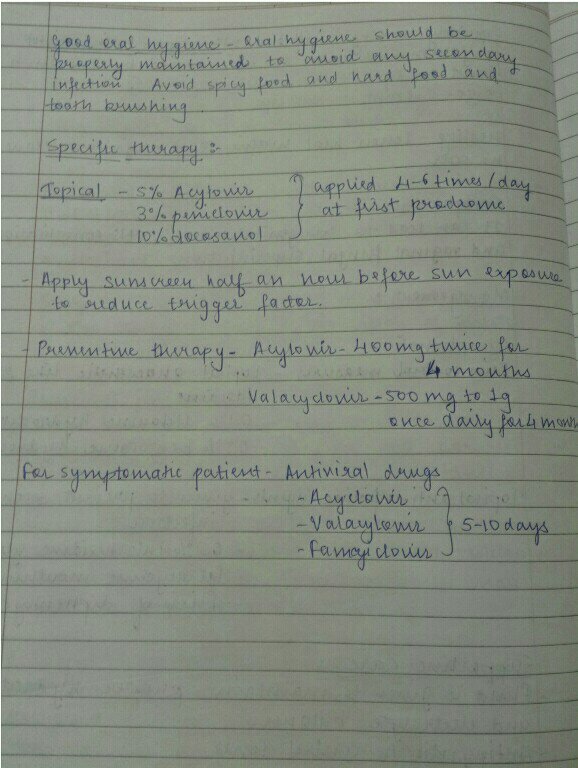 Good oral hygiene - Oral hygiene should be
properly maintained to avoid any secondary
infection. Avoid spicy food and hard food and
tooth brushing.
Specific therapy :-
Topical - 5% Acylovir } applied 4-6 times/day
3% peniclovir at first prodrome
10% docosanol
- Apply sunscreen half an hour before sun exposure
to reduce trigger factor.
- Preventine therapy - Acylovir - 400mg twice for
4 months
Valacyclovir - 500 mg to 1g
once daily for 4 mon
For symptomatic patient - Antiviral drugs
- Acyclovir
- Valacylovir } 5-10 days
- Famciclovir